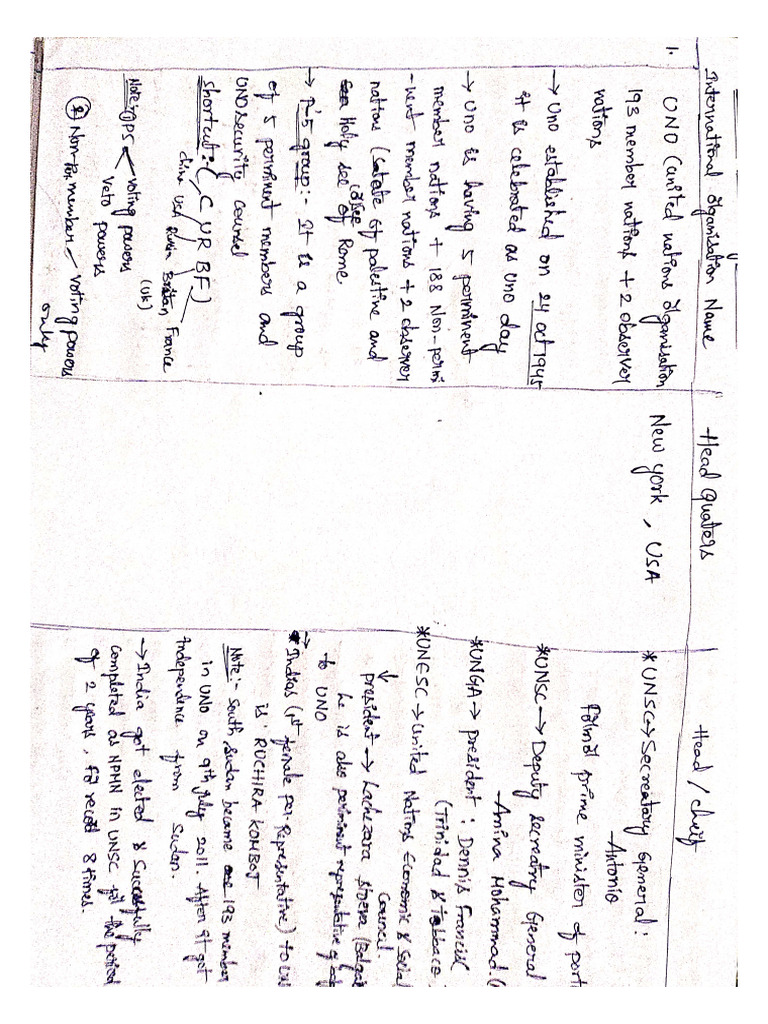 International Organisation Name
Head Quaters
Head / chief
1.
UNO (united nations Organisation
193 member nations + 2 observer
nations
→ Uno established on 24 oct 1945
it is celebrated as Uno day
→ Uno is having 5 perminent
member nations + 188 Non-permi
-nent member nations + 2 observer
nations (Satate Of palestine and
Holy see of Rome
→ P-5 group:- It is a group
of 5 perminent members and
UNO security counsel
shortcut:- (C U R B F)
china USA Russia Britan, France
(UK)
Note:- ① P5 voting powers
Veto powers
② Non-Per member voting powers
only
New york, USA
*UNSC→ Secreatary General:
- Antonio
former prime minister of port
*UNSC → Deputy secreatry General
- Amina Mohammad (
*UNGA → president: Dennis Francisk
(Trinidad & Tobbaco
*UNESC → United Nations Economic & Social
Council.
president → Lachezara Stoeva (Belgar
he is also perminent representative of
to UNO
→ * Indias (1st female per. Representative) to UN
is RUCHIRA KOMBOT
Note:- South Sudan became 193 member
in UNO on 9th July 2011. After it got
Independence from Sudan.
→ India got elected & Successfully
completed as NPMN in UNSC for the period
of 2 years, for 8 times.